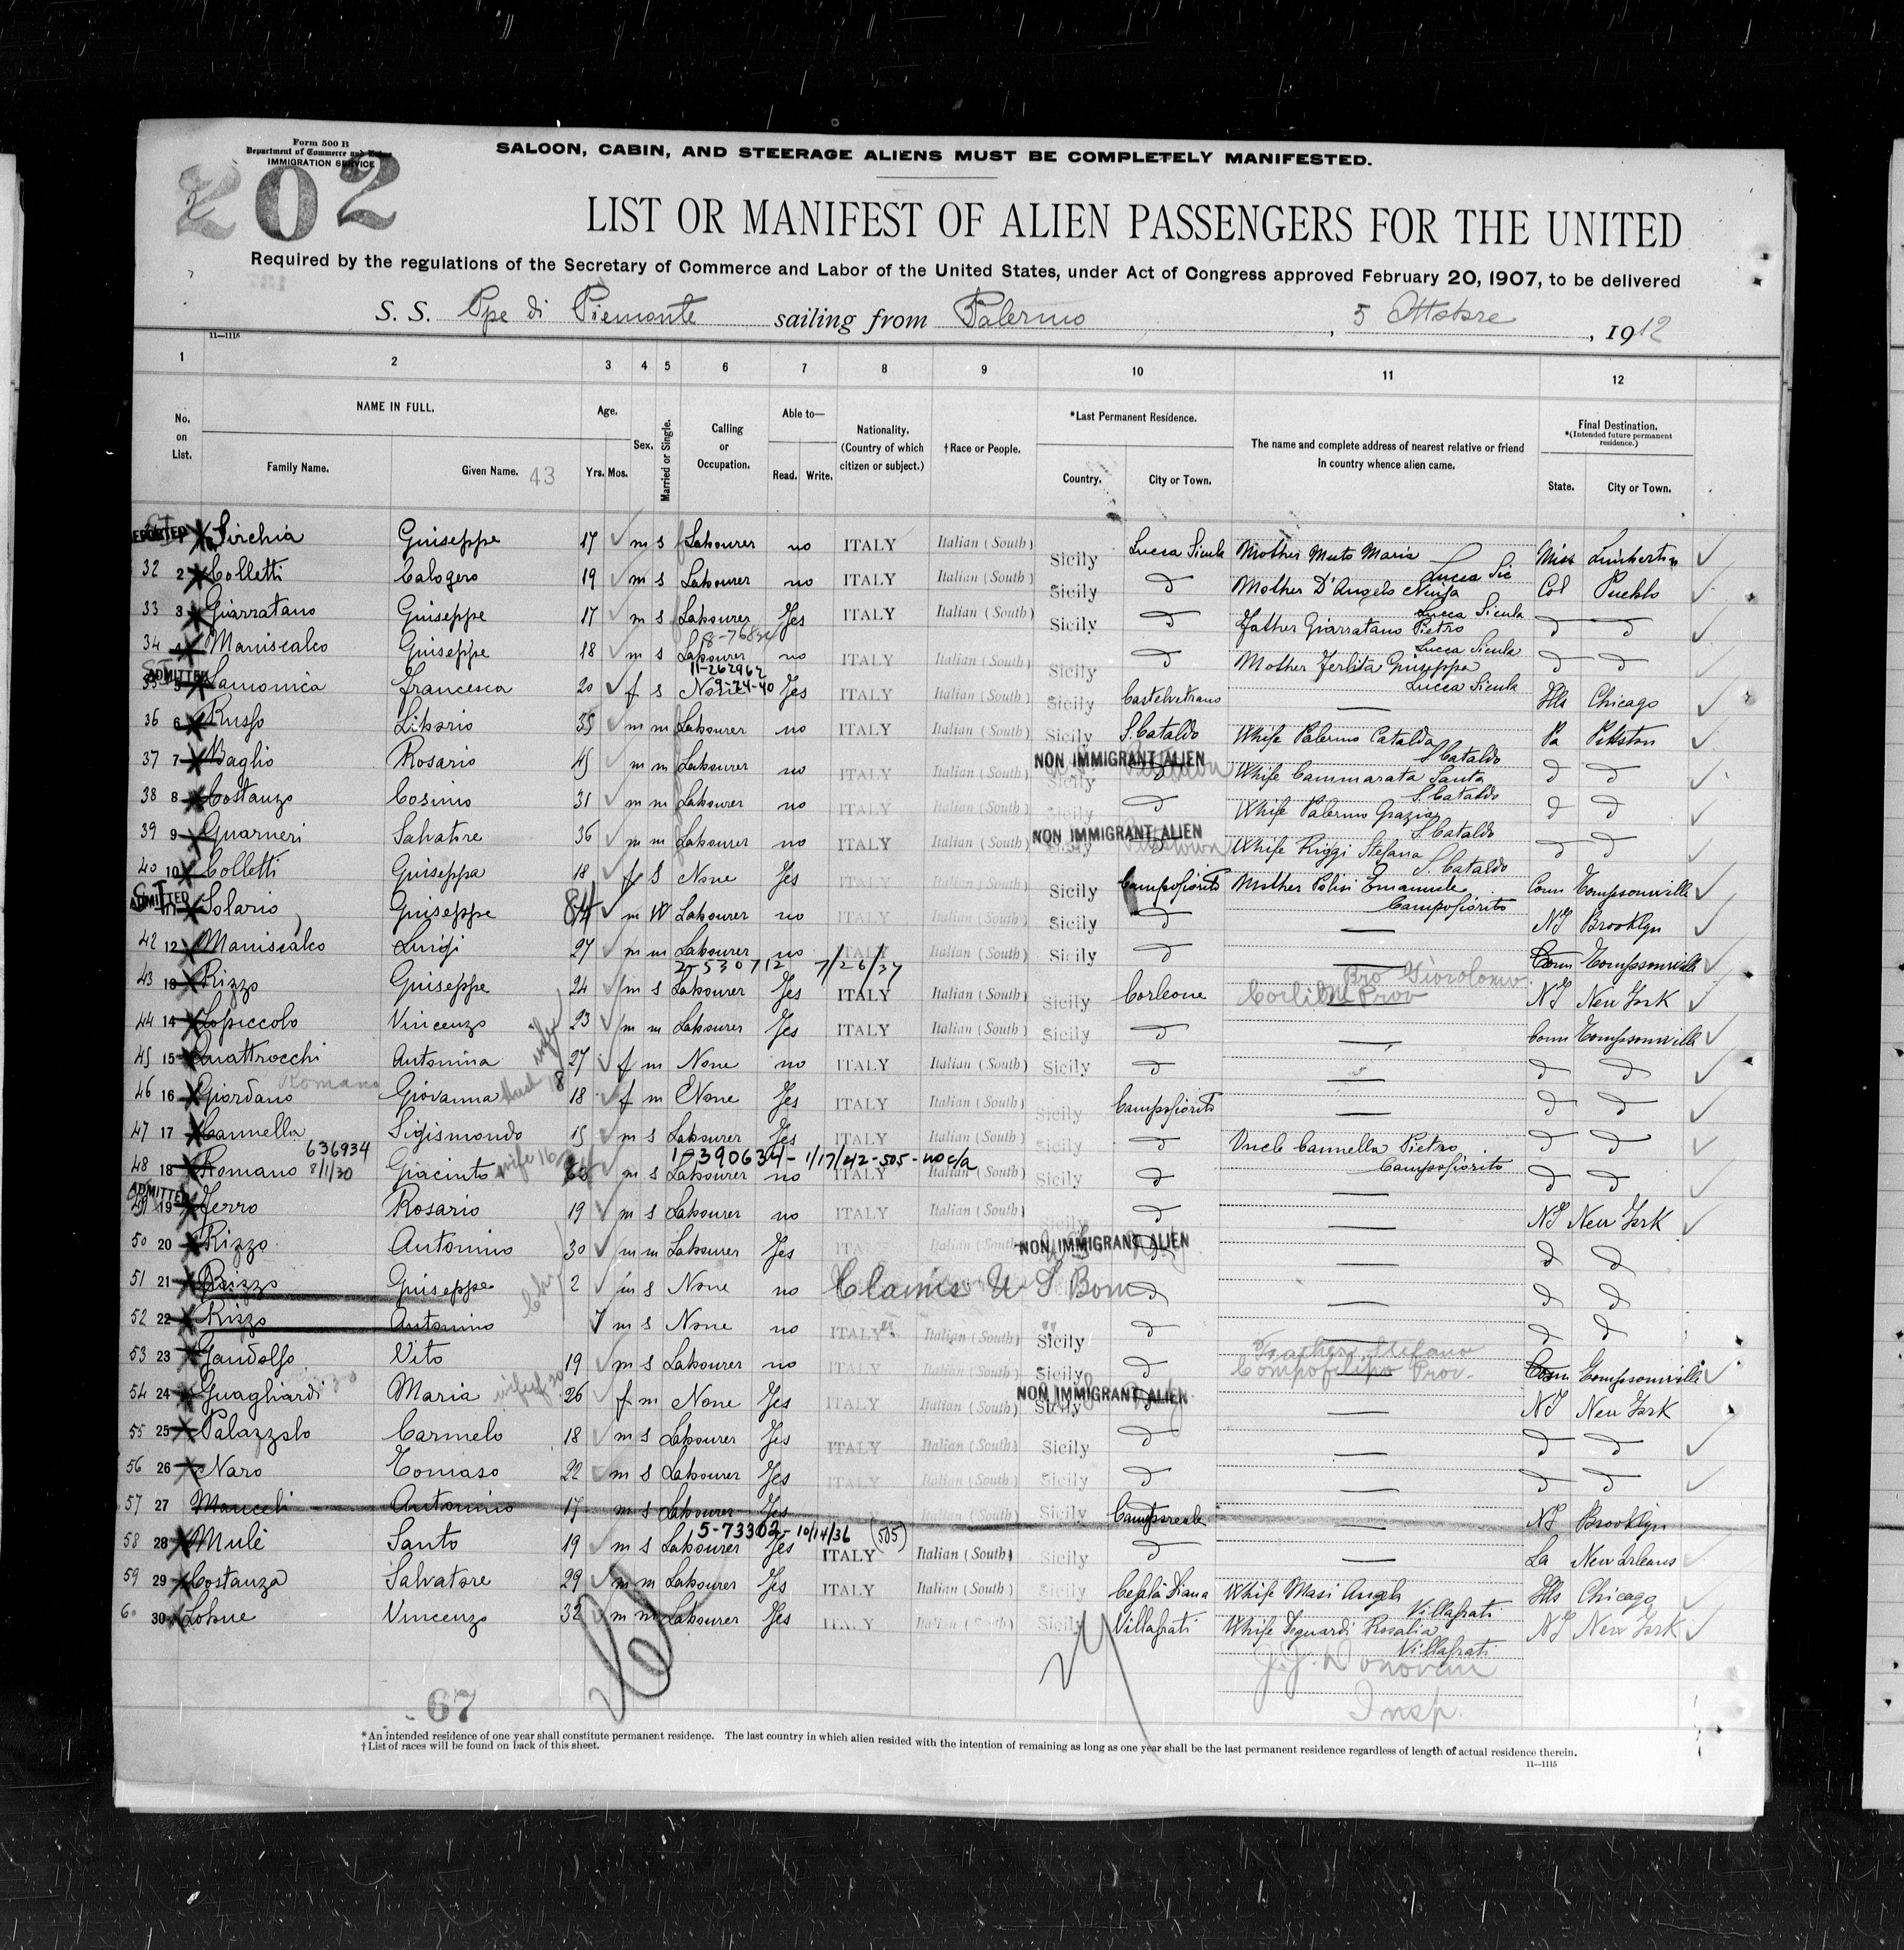 Form 500 B
Department of Commerce and Labor
IMMIGRATION SERVICE
202
SALOON, CABIN, AND STEERAGE ALIENS MUST BE COMPLETELY MANIFESTED.
LIST OR MANIFEST OF ALIEN PASSENGERS FOR THE UNITED
Required by the regulations of the Secretary of Commerce and Labor of the United States, under Act of Congress approved February 20, 1907, to be delivered
S. S. Ppe di Piemonte sailing from Palermo, 5 Ottobre, 1912
11—1115
1 2 3 4 5 6 7 8 9 10 11 12
No. on List. NAME IN FULL. Family Name. Given Name. 43 Age. Yrs. Mos. Sex. Married or Single. Calling or Occupation. Able to— Read. Write. Nationality. (Country of which citizen or subject.) †Race or People. *Last Permanent Residence. Country. City or Town. The name and complete address of nearest relative or friend in country whence alien came. Final Destination. *(Intended future permanent residence.) State. City or Town.
1 Sirchia Guiseppe 17 m s Labourer no ITALY Italian (South) Sicily Lucca Sicula Mother Muto Maria Lucca Sic Miss
32 2 Colletti Calogero 19 m s Labourer no ITALY Italian (South) Sicily d Mother D'Angelo Ninfa Lucca Sicula Col Pueblo
33 3 Giarratano Guiseppe 17 m s Labourer Yes ITALY Italian (South) Sicily d Father Giarratano Pietro Lucca Sicula d d
34 4 Maniscalco Guiseppe 18 m s Labourer no ITALY Italian (South) Sicily d Mother Ferlita Guiseppa Lucca Sicula d d
11-262962
9-24-40
ADMITTED 35 5 Lamonica Francesca 20 f s None Yes ITALY Italian (South) Sicily Castelvetrano — Ills Chicago
36 6 Russo Liborio 35 m m Labourer no ITALY Italian (South) Sicily S. Cataldo Whife Palermo Catalda S. Cataldo Pa Pittston
37 7 Baglio Rosario 45 m m Labourer no ITALY Italian (South) Sicily NON IMMIGRANT ALIEN d Whife Cammarata Santa S. Cataldo d d
38 8 Costanzo Cosimo 31 m m Labourer no ITALY Italian (South) Sicily d Whife Palermo Grazia S. Cataldo d d
39 9 Guarneri Salvatore 36 m m Labourer no ITALY Italian (South) Sicily NON IMMIGRANT ALIEN d Whife Riggi Stefana S. Cataldo d d
40 10 Colletti Guiseppa 18 f S None Yes ITALY Italian (South) Sicily Campofiorito Mother Polisi Emanuele Campofiorito Conn Tompsonville
ADMITTED 11 Solario Guiseppe m W Labourer no ITALY Italian (South) Sicily d — NY Brooklyn
42 12 Maniscalco Luigi 27 m m Labourer no ITALY Italian (South) Sicily d — Conn Tompsonville
2-530712 7/26/37
43 13 Rizzo Guiseppe 24 m s Labourer Yes ITALY Italian (South) Sicily Corleone — Bro Prov NY New York
44 14 Lopiccolo Vincenzo 23 m m Labourer Yes ITALY Italian (South) Sicily d — Conn Tompsonville
45 15 Quattrocchi Antonina 27 f m None no ITALY Italian (South) Sicily d — d d
46 16 Giordano Romano Giovanna 18 f m None Yes ITALY Italian (South) Sicily Campofiorito — d d
47 17 Cannella Sigismondo 15 m s Labourer Yes ITALY Italian (South) Sicily d Uncle Cannella Pietro Campofiorito d d
636934 8/11/30
1-390634 - 1/17/42 - 505 - no c/a
48 18 Romano Giacinto m s Labourer no ITALY Italian (South) Sicily d — d d
ADMITTED 19 Ferro Rosario 19 m s Labourer no ITALY Italian (South) d — NY New York
50 20 Rizzo Antonino 30 m m Labourer Yes Italian (South) NON IMMIGRANT ALIEN d — d d
51 21 Rizzo Guiseppe 2 m s None no Claims U S Born d — d d
52 22 Rizzo Antonino m s None no ITALY Italian (South) Sicily d — d d
53 23 Gandolfo Vito 19 m s Labourer no ITALY Italian (South) Sicily d Father Stefano Prov. Conn Tompsonville
54 24 Guagliardi Maria 26 f m None Yes ITALY Italian (South) Sicily NON IMMIGRANT ALIEN d — NY New York
55 25 Palazzolo Carmelo 18 m s Labourer Yes ITALY Italian (South) Sicily d — d d
56 26 Naro Tomaso 22 m s Labourer Yes ITALY Italian (South) Sicily d — d d
57 27 Antonino 17 m s Labourer Yes Italian (South) Sicily Campsreale — NY Brooklyn
5-73302 10/14/36 (505)
58 28 Mulè Santo 19 m s Labourer Yes ITALY Italian (South) Sicily d — La New Orleans
59 29 Costanza Salvatore 29 m m Labourer Yes ITALY Italian (South) Sicily Cefalà Diana Whife Masi Angela Villafrati Ills Chicago
60 30 Lobue Vincenzo 32 m m Labourer Yes ITALY Italian (South) Sicily Villafrati Whife Rosalia Villafrati NY New York
J. J. Donovan
Insp.
67
*An intended residence of one year shall constitute permanent residence. The last country in which alien resided with the intention of remaining as long as one year shall be the last permanent residence regardless of length of actual residence therein.
†List of races will be found on back of this sheet.
11—1115